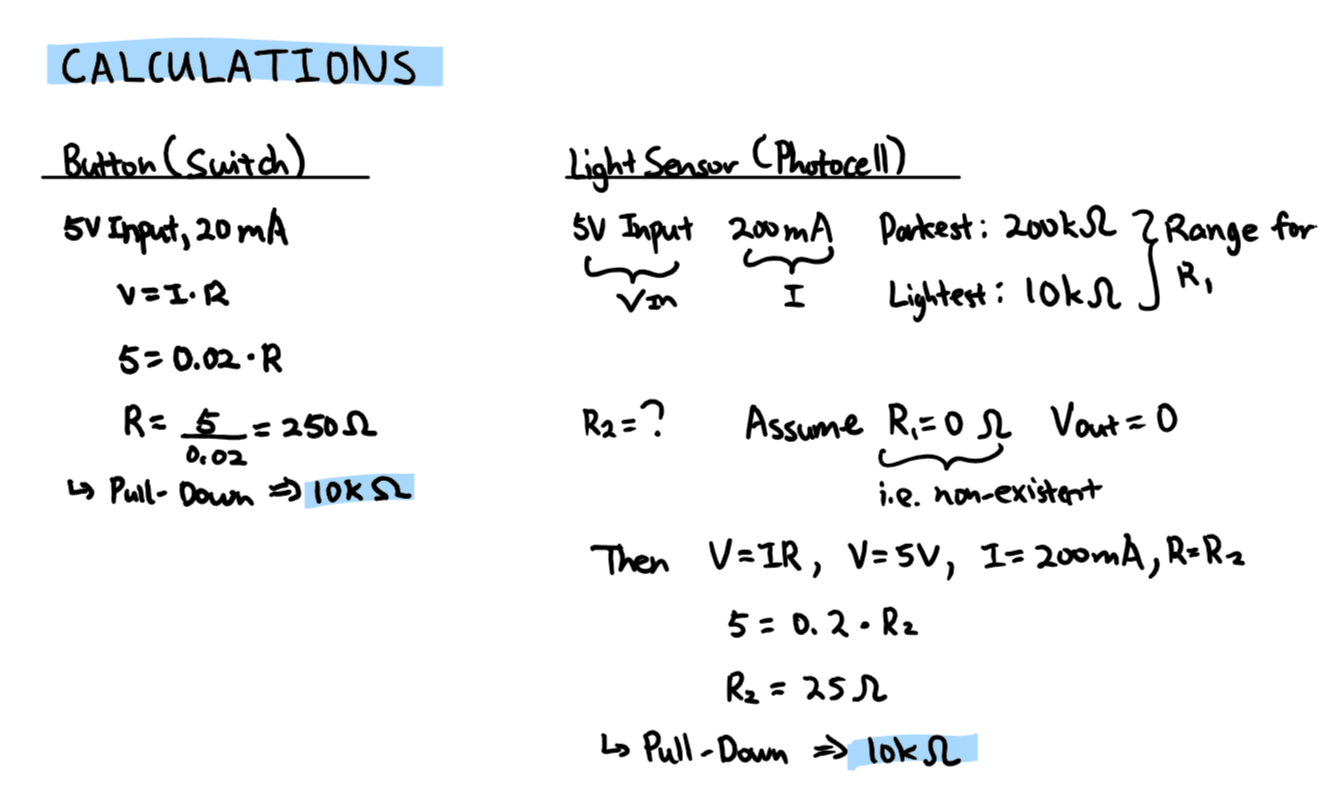 CALCULATIONS
Button (Switch)
5V Input, 20mA
V = I · R
5 = 0.02 · R
R = 5/0.02 = 250Ω
↳ Pull-Down ⇒ 10kΩ
Light Sensor (Photocell)
5V Input 200mA Darkest: 200kΩ } Range for R₁
Vin I Lightest: 10kΩ
R₂ = ? Assume R₁ = 0 Ω Vout = 0
i.e. non-existent
Then V = IR, V = 5V, I = 200mA, R = R₂
5 = 0.2 · R₂
R₂ = 25Ω
↳ Pull-Down ⇒ 10kΩ